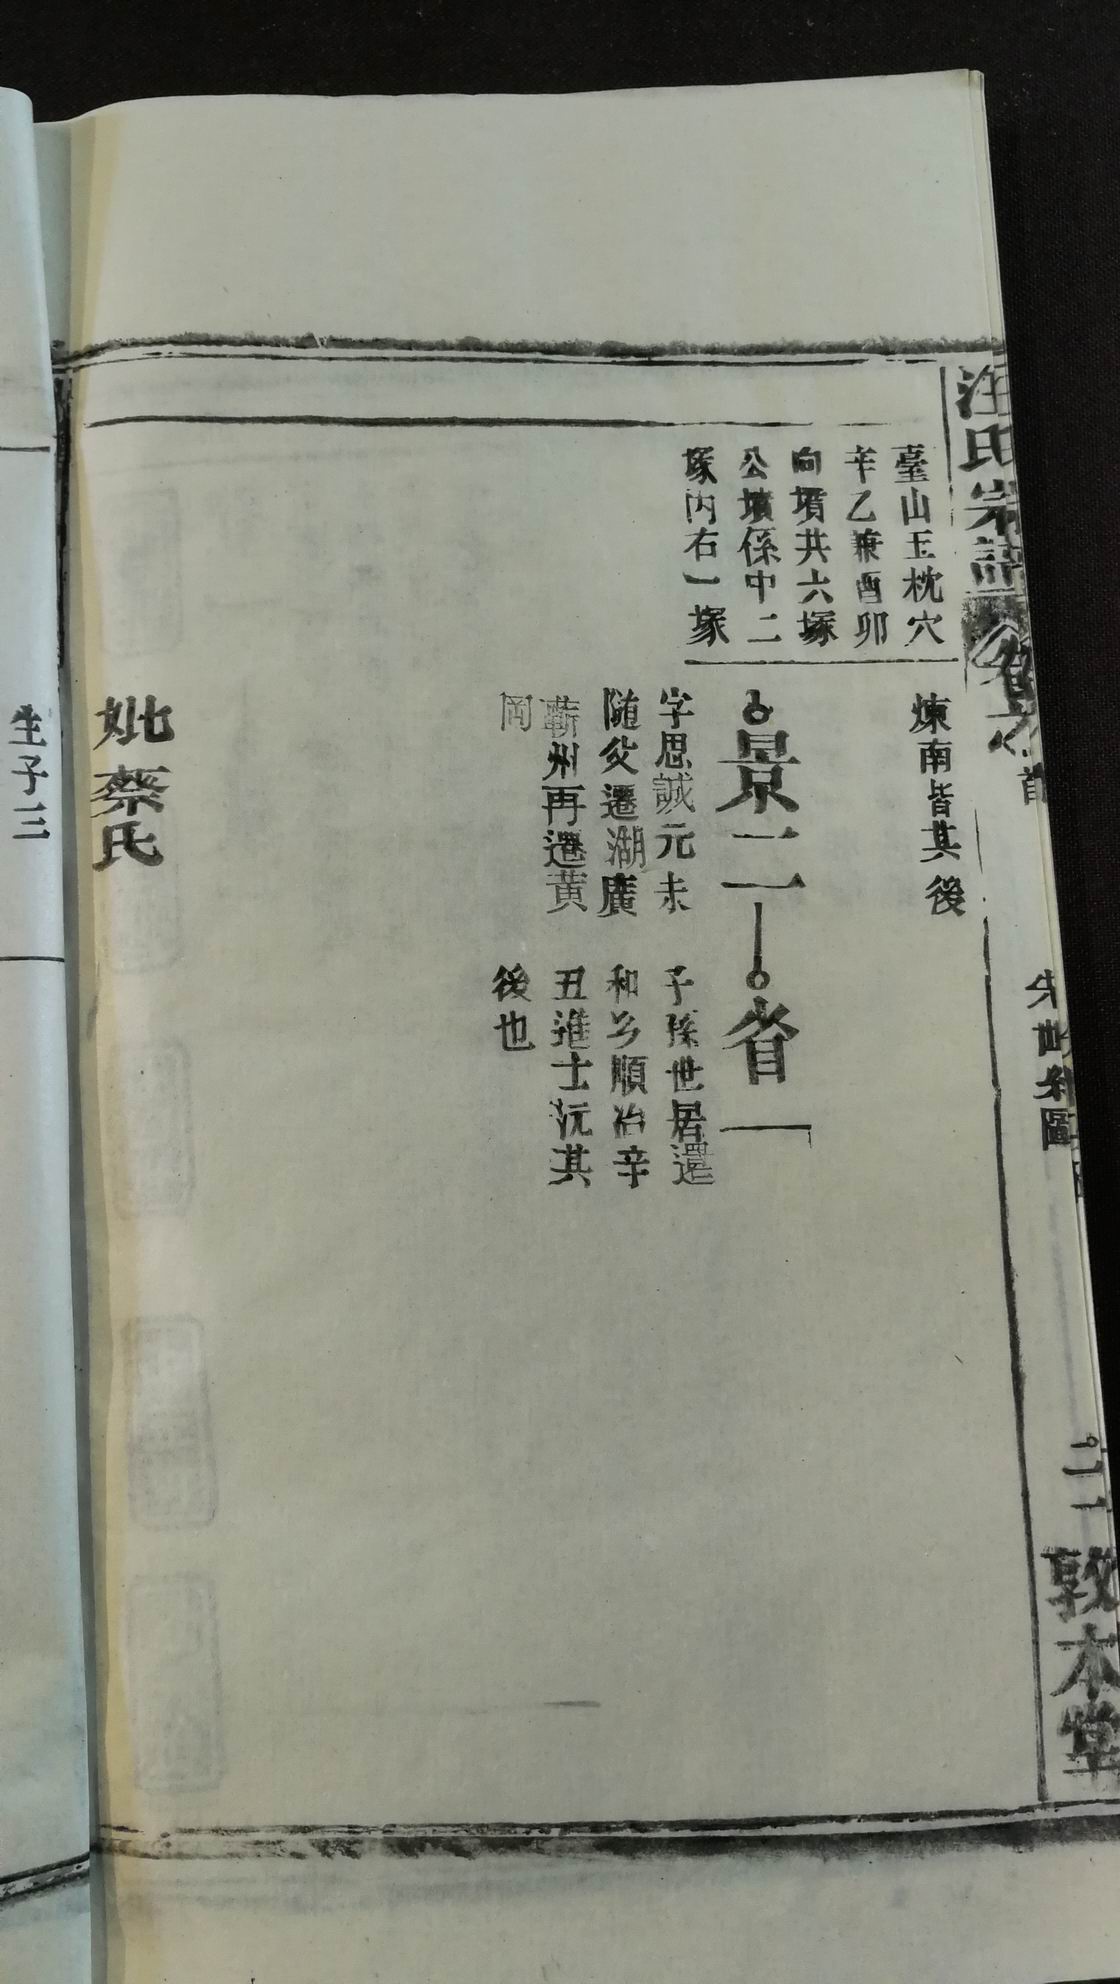 汪氏宗譜
敦本堂
臺山玉枕穴
辛乙兼酉卯
向墳共六塚
公墳係中二
塚內右一塚
煉南皆其後
景二
字思誠元末
随父遷湖廣
蘄州再遷黃
岡
省一
子孫世居還
和乡順治辛
丑進士沅其
後也
妣蔡氏
生子三